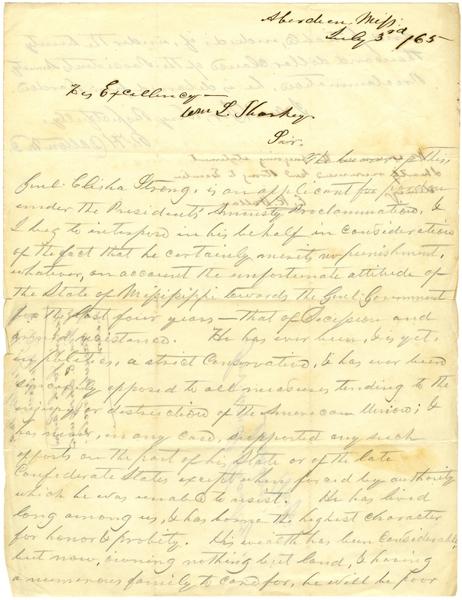 Aberdeen Miss
July 3rd /65
His Excellency —
Wm L. Sharkey
Sir.
The bearer of this,
Genl. Elisha Strong, is an applicant for pardon
under the Presidents' Amnesty Proclammation, &
I beg to interpose in his behalf in consideration
of the fact that he certainly merits no punishment,
whatever, on account the unfortunate attitude of
the State of Mississippi towards the Genl. Government
for the last four years — that of Secession and
armed resistance. He has ever been, & is yet,
in politics, a strict Conservative, & has ever been
sincerely opposed to all measures tending to the
injury or distruction of the American Union; &
has never, in any case, supported any such
efforts on the part of his State or of the late
Confederate States except when forced by authority
which he was unable to resist. He has lived
long among us, & has borne the highest character
for honor & probity. His wealth has been considerable,
but now, owning nothing but land, & having
a numerous family to care for, he will be poor